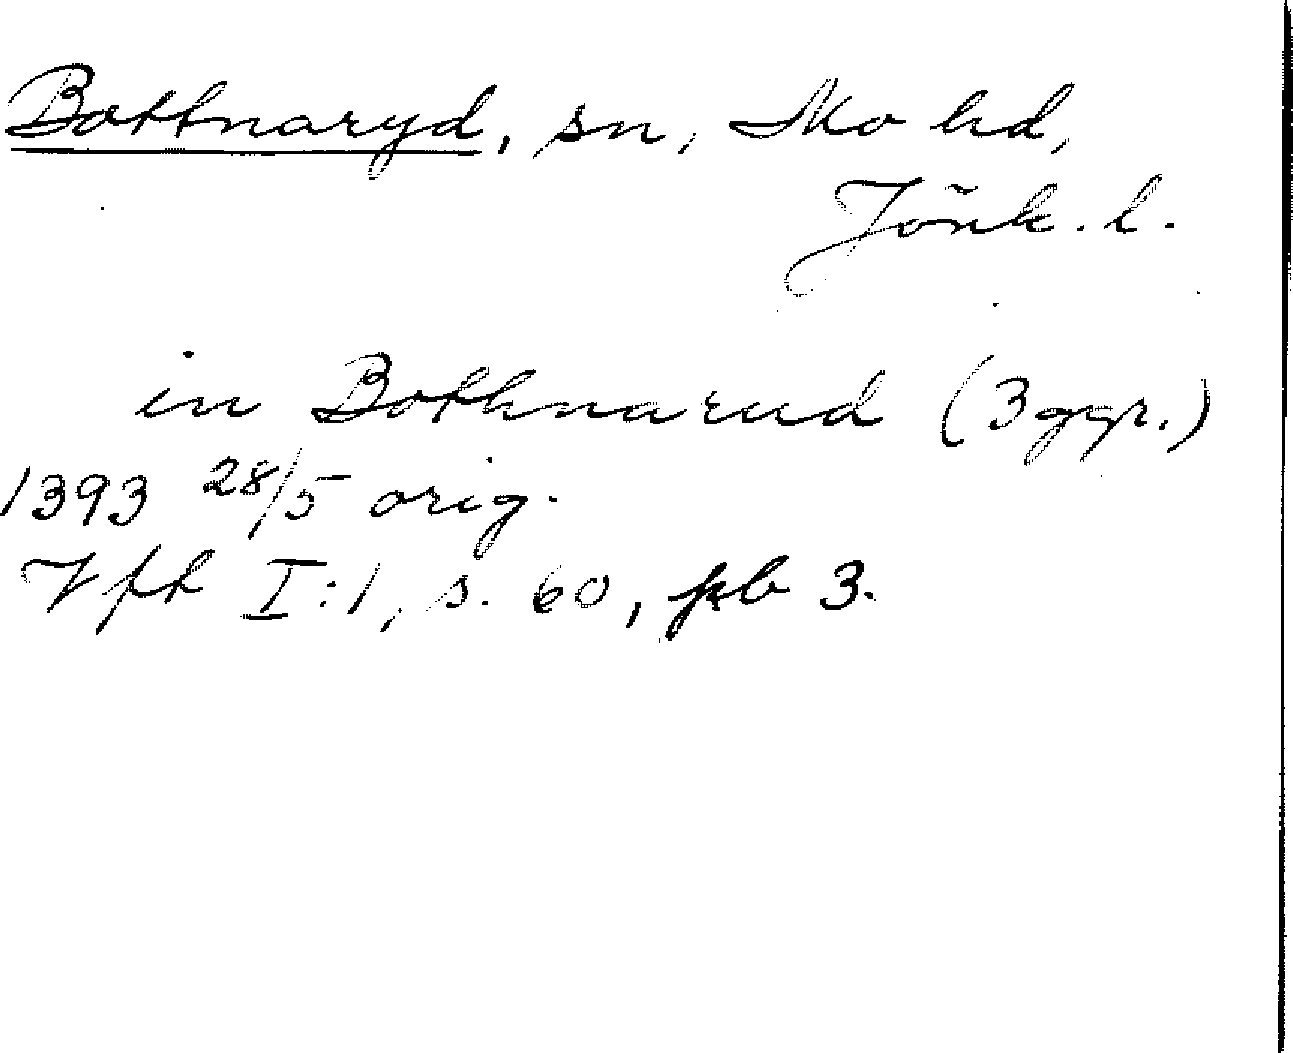 Bottnaryd, sn, Mo hd,
Jönk. l.
in Bothnarud (3 ggr.)
1393 28/5 orig.
Vfh I:1, s. 60, pb 3.